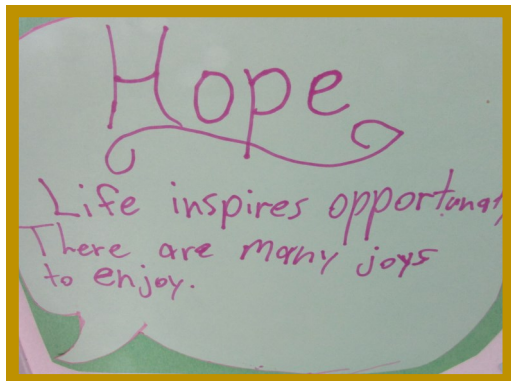 Hope
Life inspires
There are many joys
to enjoy.